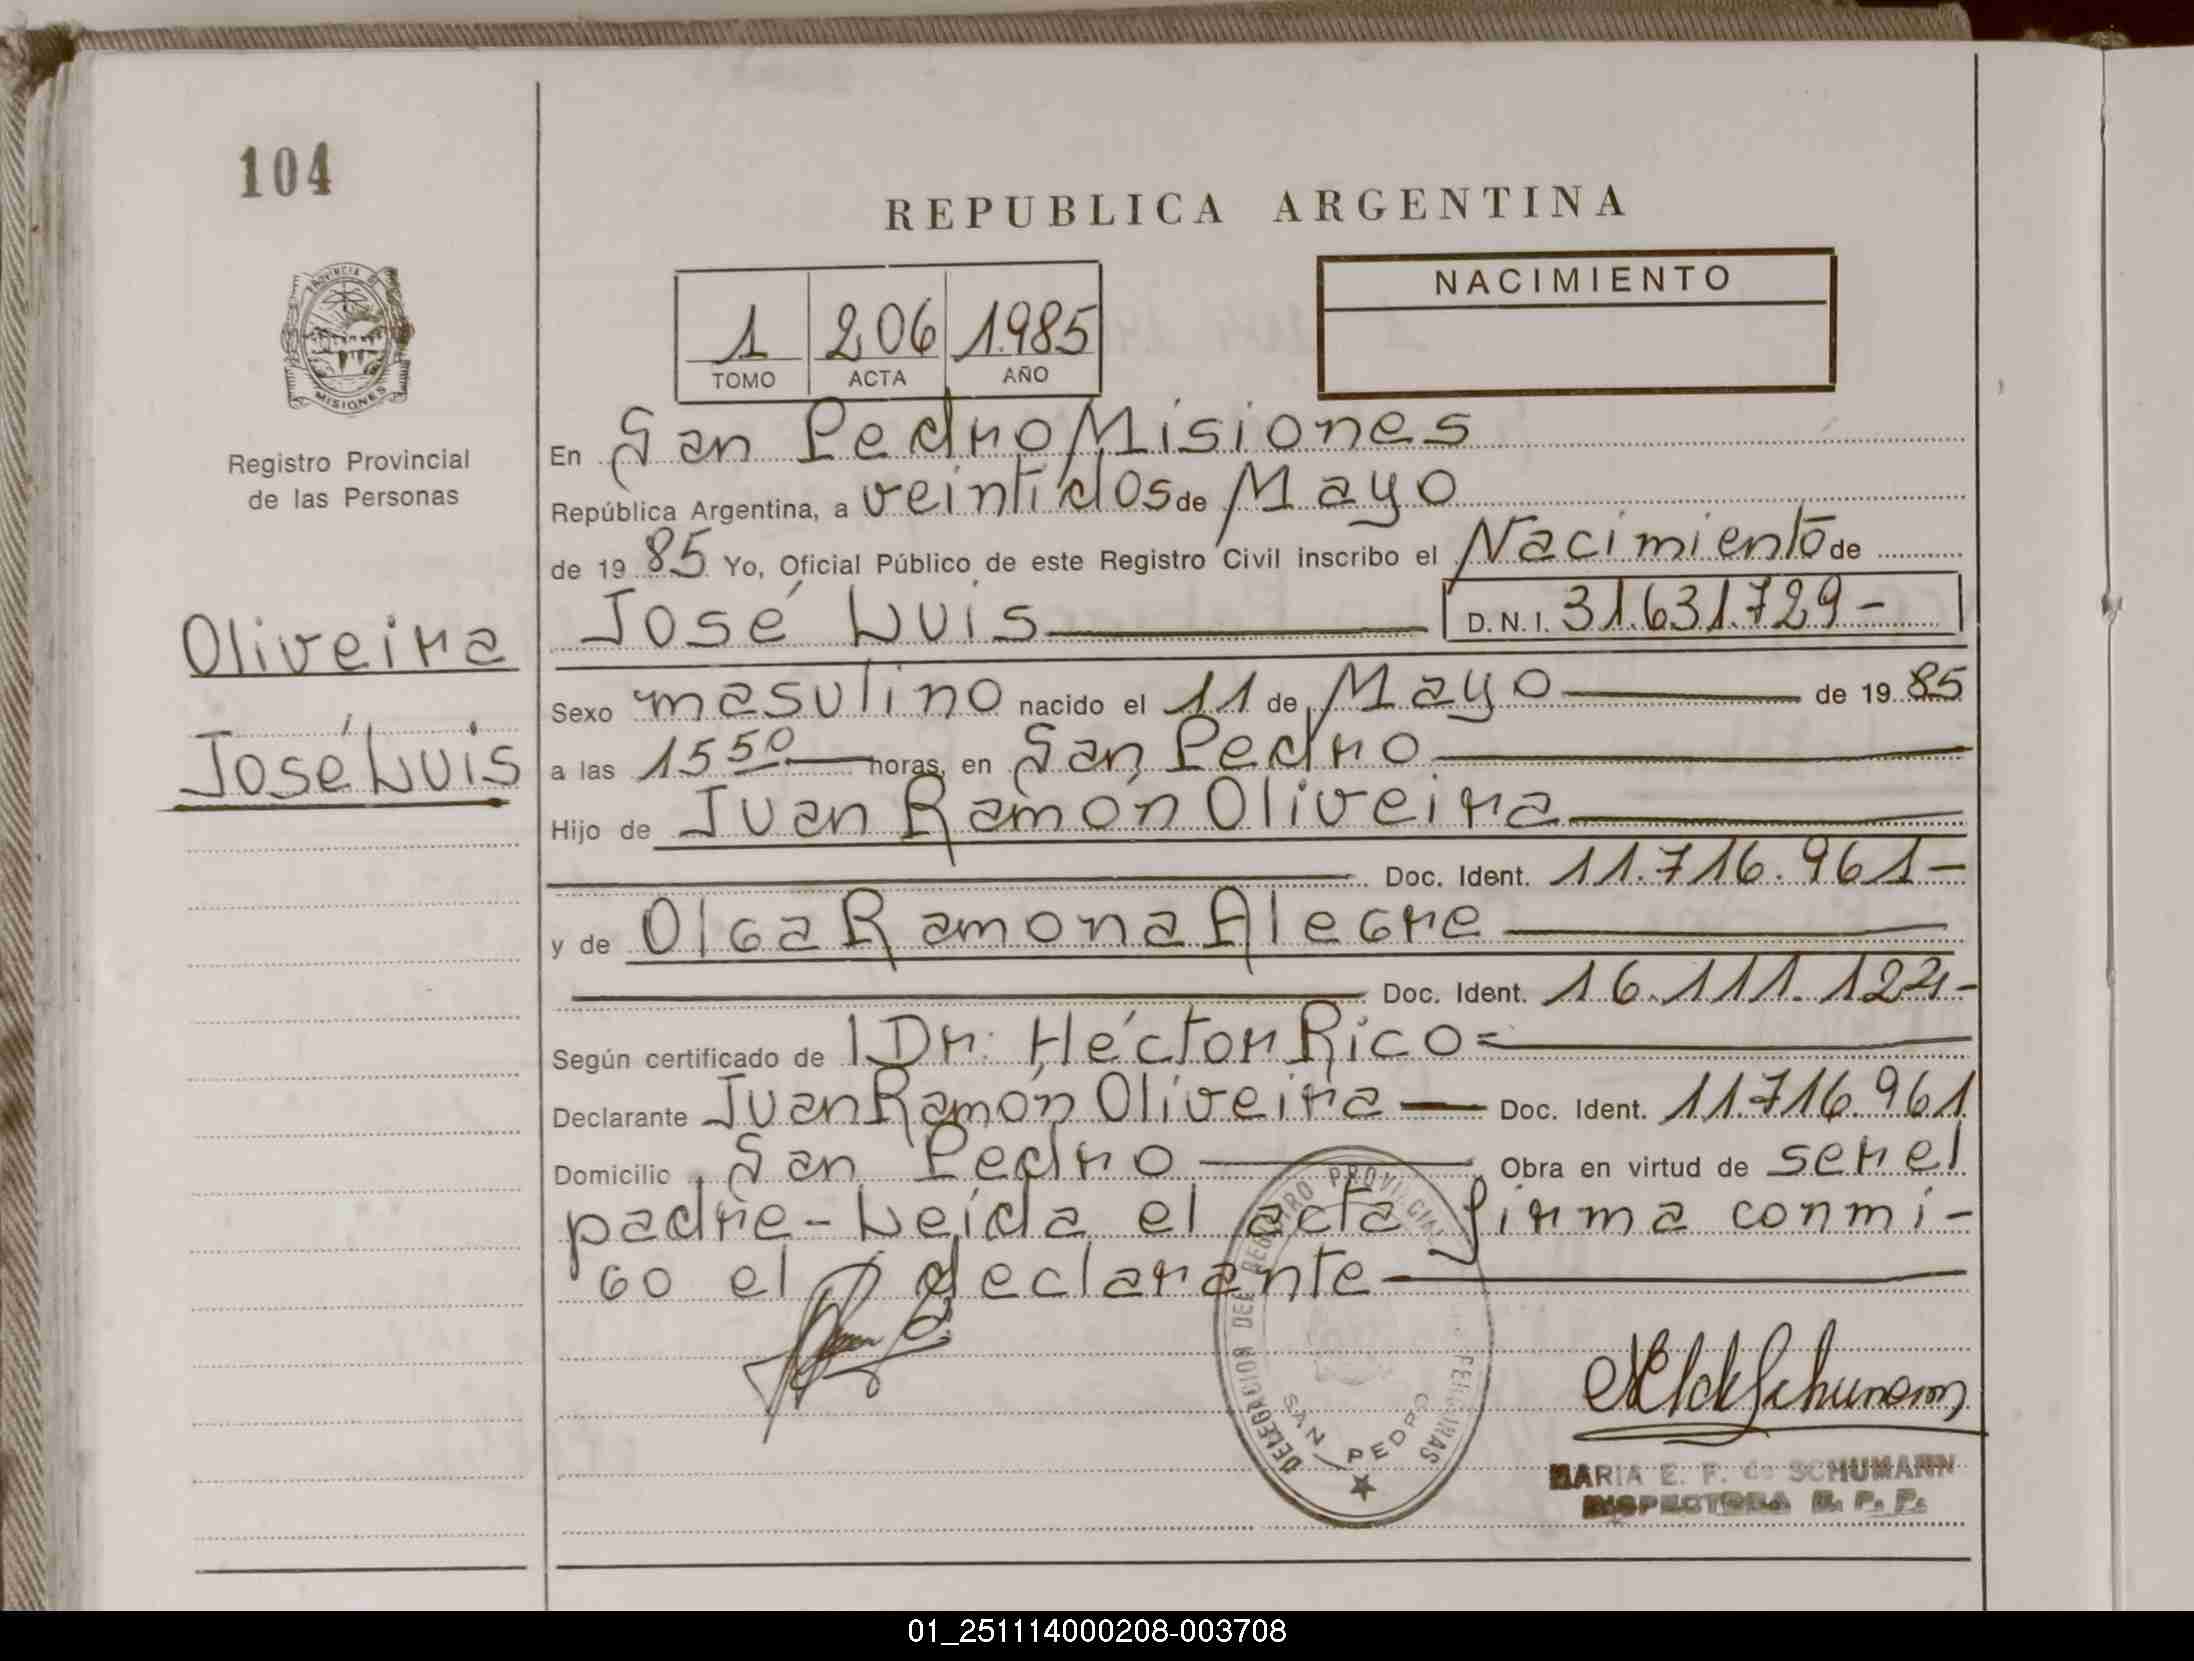 104
REPUBLICA ARGENTINA
PROVINCIA DE
MISIONES
Registro Provincial
de las Personas
1 206 1.985
TOMO ACTA AÑO
NACIMIENTO
En San Pedro Misiones
República Argentina, a veintidos de Mayo
de 19 85 Yo, Oficial Público de este Registro Civil inscribo el Nacimiento de
José Luis D.N.I. 31.631.729-
Oliveira
José Luis
Sexo masulino nacido el 11 de Mayo de 19 85
a las 15 50 horas, en San Pedro
Hijo de Juan Ramón Oliveira
Doc. Ident. 11.716.961-
y de Olga Ramona Alegre
Doc. Ident. 16.111.124-
Según certificado de Dr. Héctor Rico=
Declarante Juan Ramón Oliveira Doc. Ident. 11.716.961
Domicilio San Pedro Obra en virtud de ser el
padre- Leída el acta firma conmi-
go el declarante
DELEGACION DEL REGISTRO PROVINCIAL DE LAS PERSONAS
SAN PEDRO
MARIA E. F. de SCHUMANN
INSPECTORA R. P. P.
01_251114000208-003708